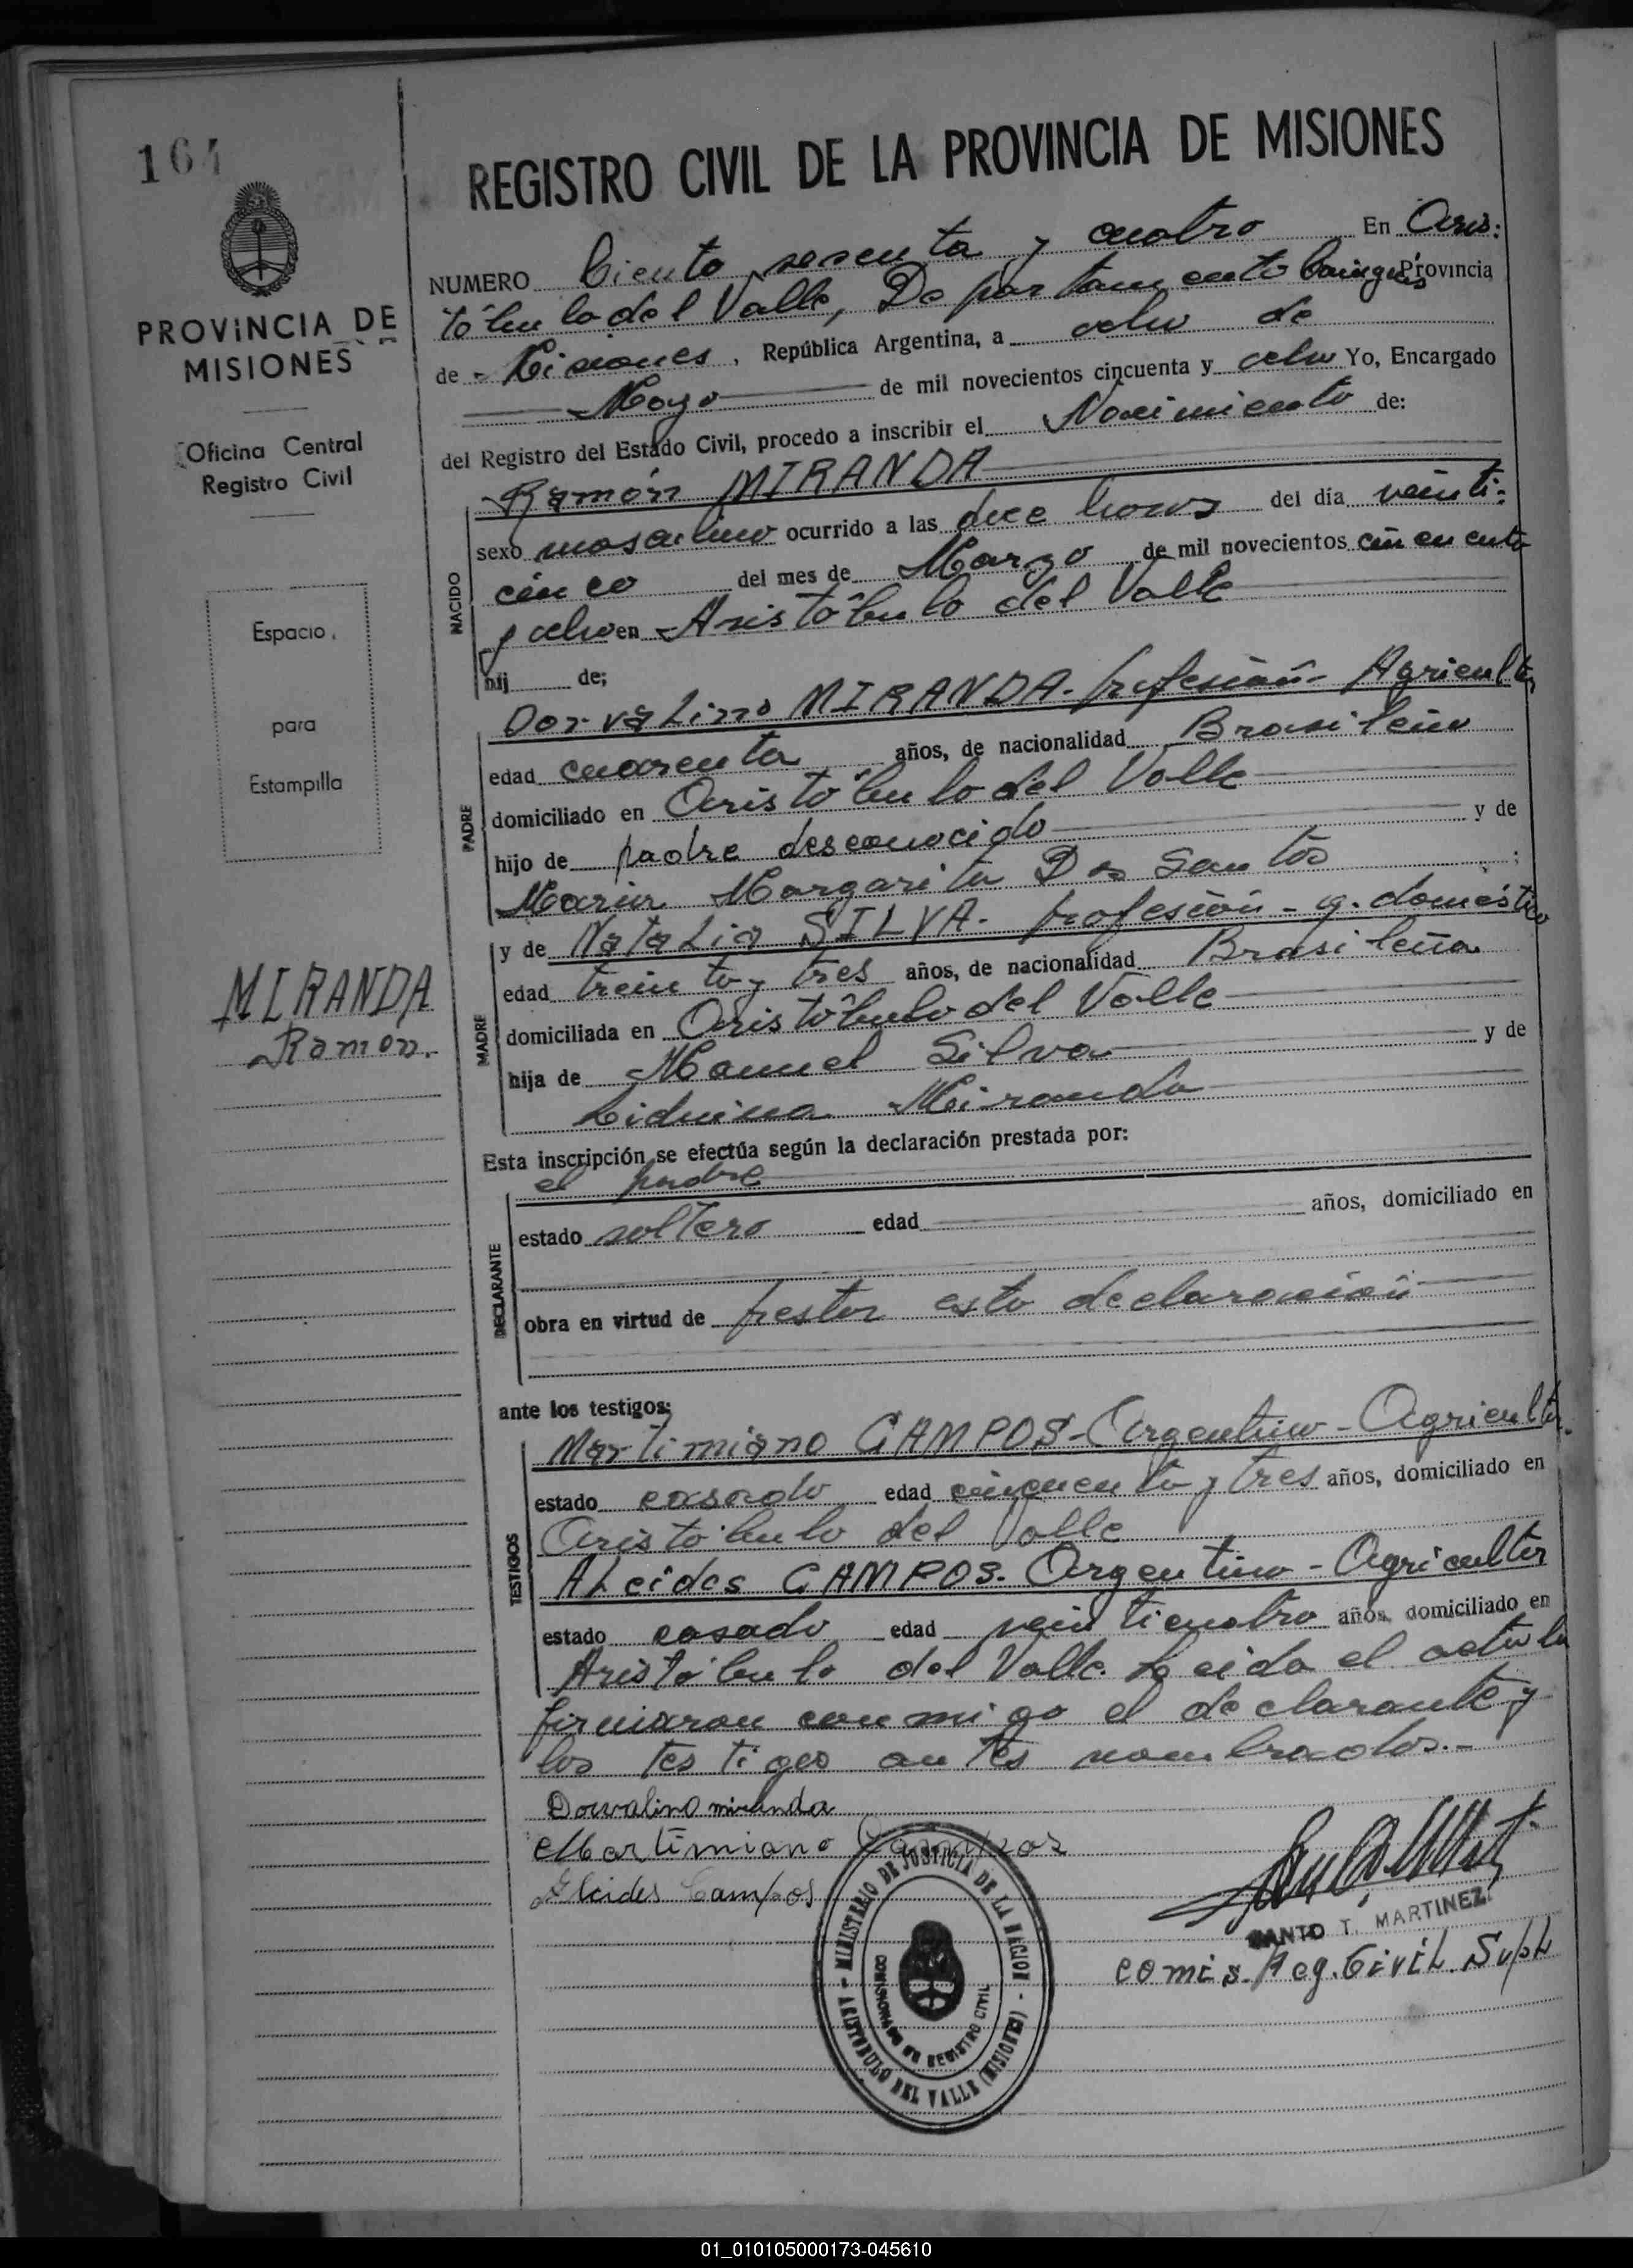 164
PROVINCIA DE
MISIONES
Oficina Central
Registro Civil
Espacio
para
Estampilla
MIRANDA
Ramon.
REGISTRO CIVIL DE LA PROVINCIA DE MISIONES
NUMERO Ciento sesenta y cuatro En Aris:
tóbulo del Valle, Departamento Cainguás Provincia
de - Misiones, República Argentina, a ocho de
Mayo de mil novecientos cincuenta y ocho Yo, Encargado
del Registro del Estado Civil, procedo a inscribir el Nacimiento de:
Ramón MIRANDA
NACIDO
sexo masculino ocurrido a las doce horas del día veinti-
cinco del mes de Marzo de mil novecientos cincuenta
y ocho en Aristóbulo del Valle
hij de;
Dorvalino MIRANDA- profesión- Agricultor
PADRE
edad cuarenta años, de nacionalidad Brasileño
domiciliado en Aristóbulo del Valle
hijo de padre desconocido y de
María Margarita Dos Santos ;
y de Natalia SILVA- profesión - q. domésticos
MADRE
edad treinta y tres años, de nacionalidad Brasileña
domiciliada en Aristóbulo del Valle
hija de Manuel Silva y de
Miranda
Esta inscripción se efectúa según la declaración prestada por:
el padre
DECLARANTE
estado soltero edad años, domiciliado en
obra en virtud de prestar esta declaración
ante los testigos:
Martimiano CAMPOS- Argentino - Agricultor
TESTIGOS
estado casado edad cincuenta y tres años, domiciliado en
Aristóbulo del Valle
Alcides CAMPOS- Argentino - Agricultor
estado casado edad veinticuatro años, domiciliado en
Aristóbulo del Valle. Leida el acta la
firmaron conmigo el declarante y
los testigos antes nombrados.-
Dorvalino miranda
Martimiano Campos
Alcides Campos
MINISTERIO DE JUSTICIA DE LA NACION - ARISTOBULO DEL VALLE (MISIONES) -
REGISTRO CIVIL
SANTO T. MARTINEZ
comis. Reg. Civil. Supl
01_010105000173-045610